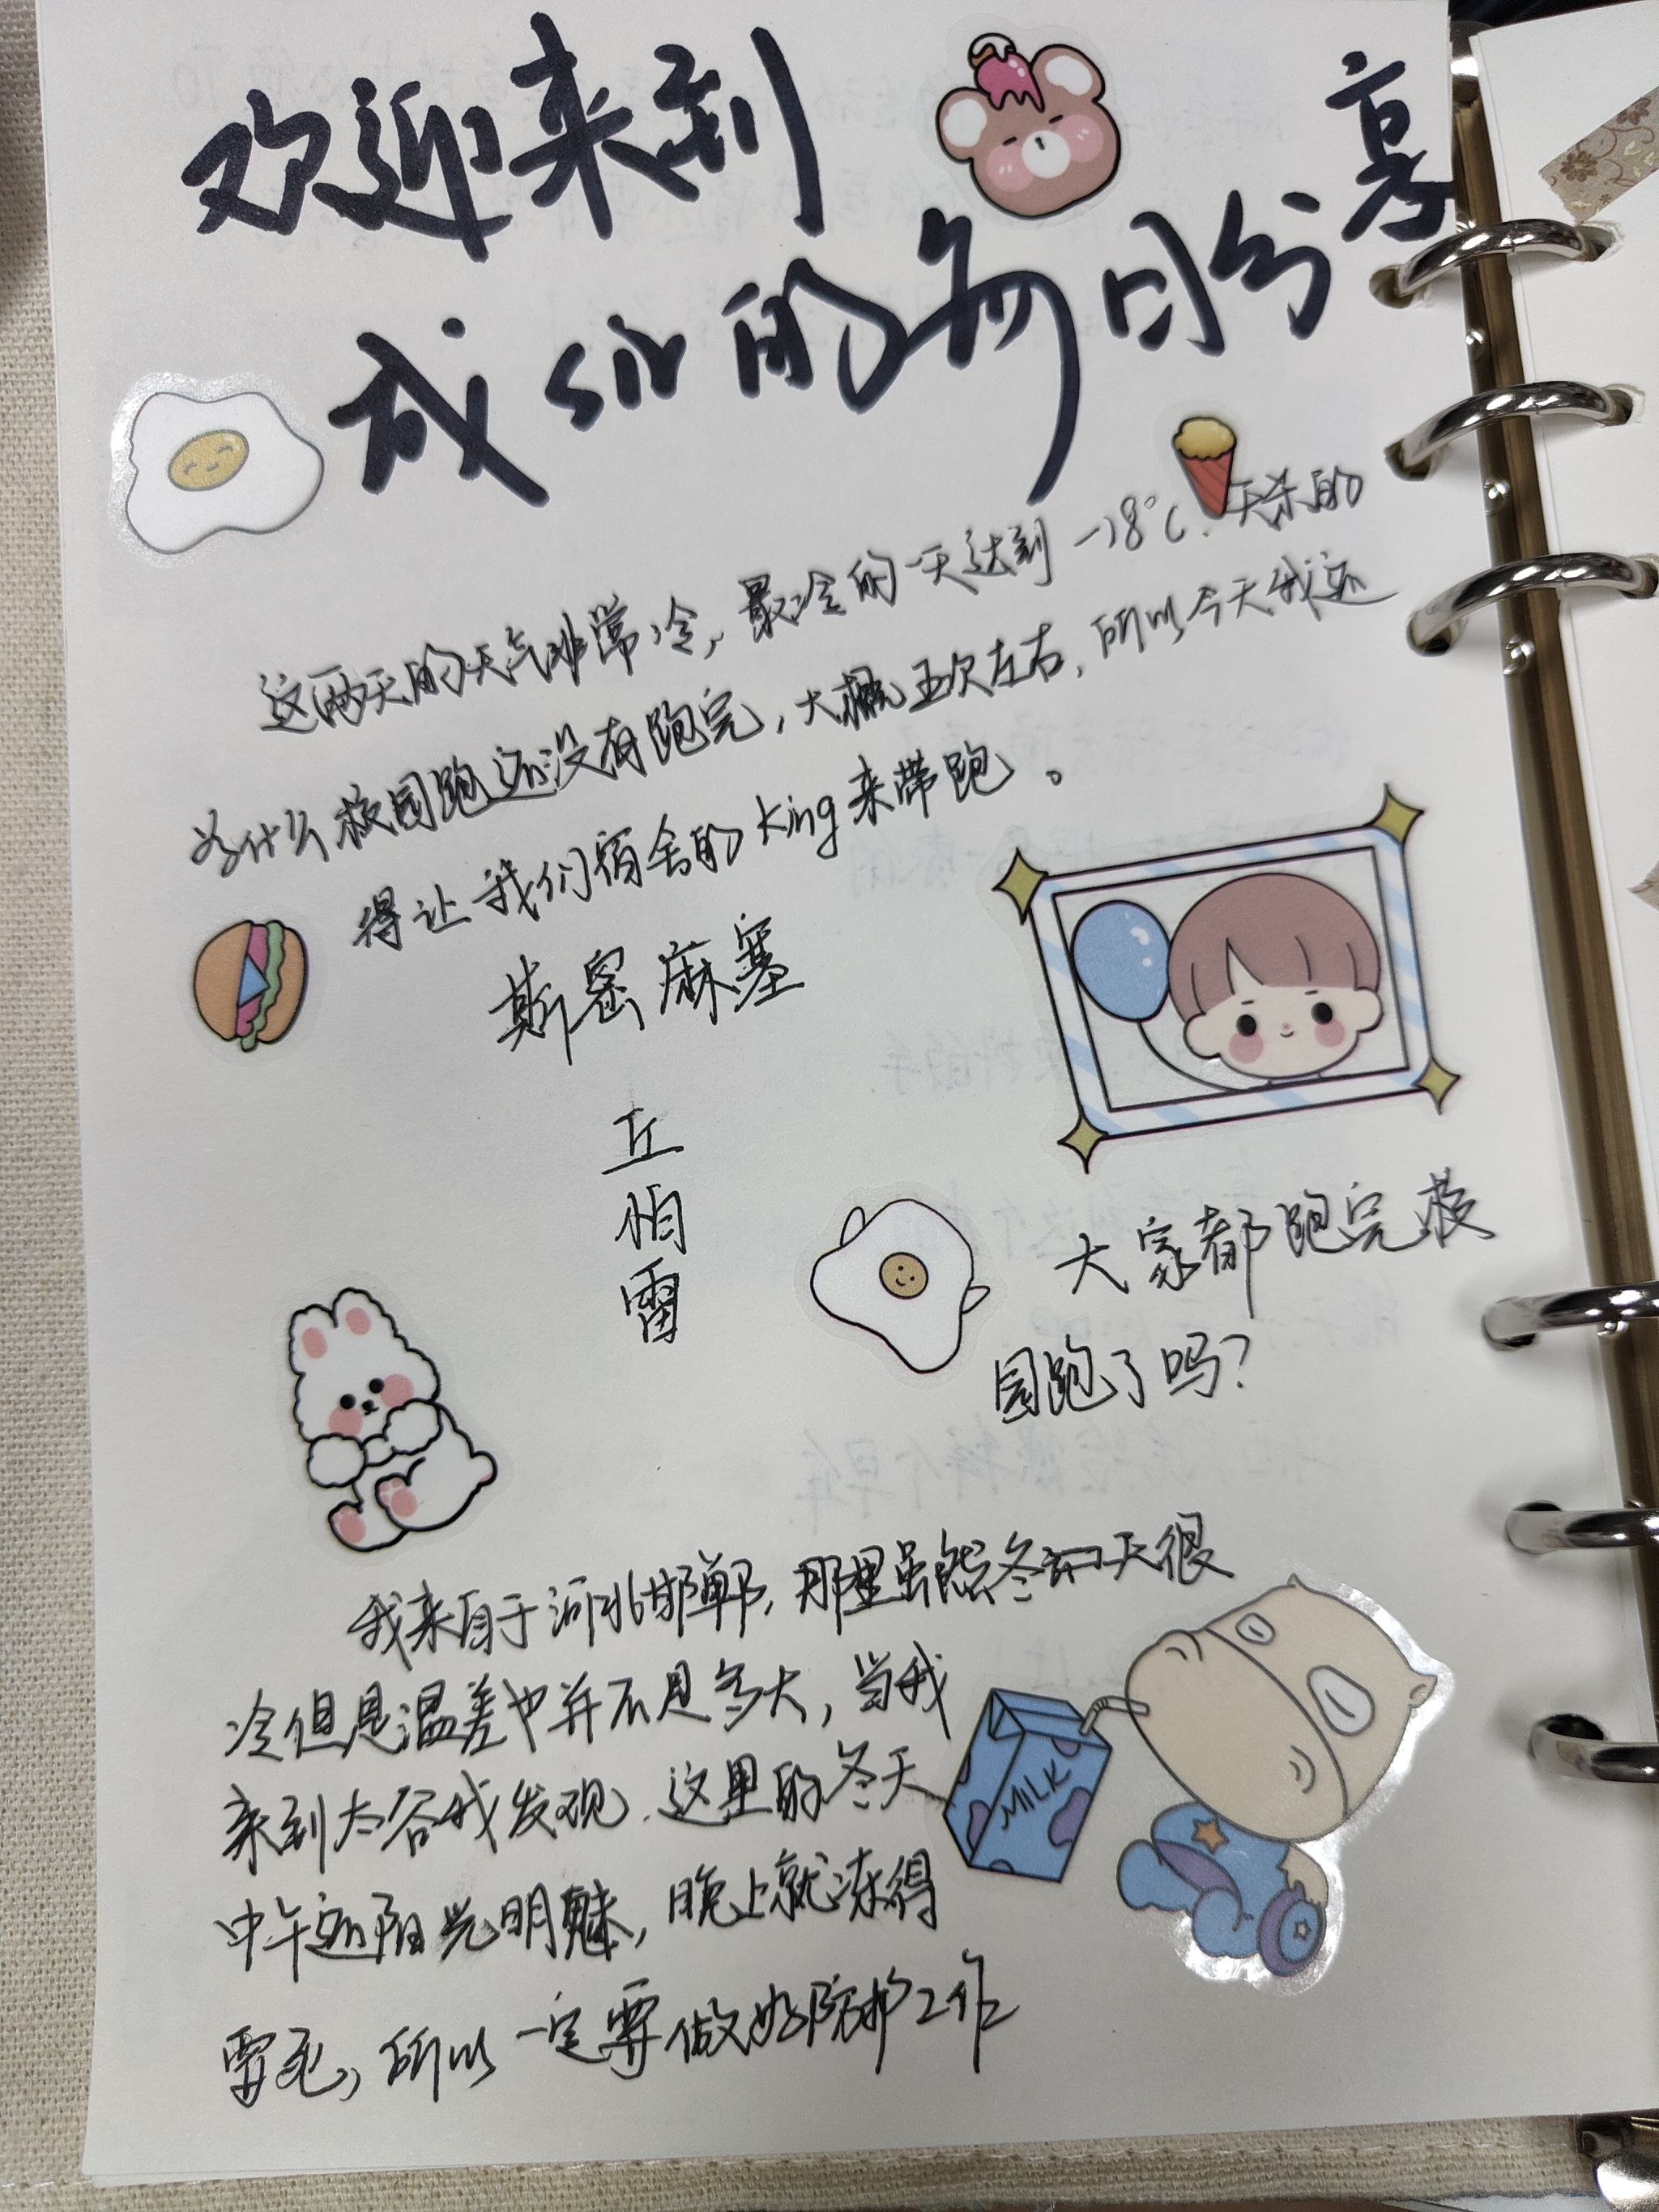 欢迎来到
成sir的每日分享
这两天的天气非常冷，最冷的一天达到-18℃.天杀的
为什么校园跑还没有跑完，大概五次左右，所以今天我还
得让我们宿舍的king来带跑。
斯密麻塞
丘
怕
雷
大家都跑完校
园跑了吗?
我来自于河北邯郸，那里虽然冬天很
冷但是温差也并不是多大，当我
来到太谷我发现.这里的冬天
中午还阳光明魅，晚上就冻得
要死，所以一定要做好防护工作
MILK